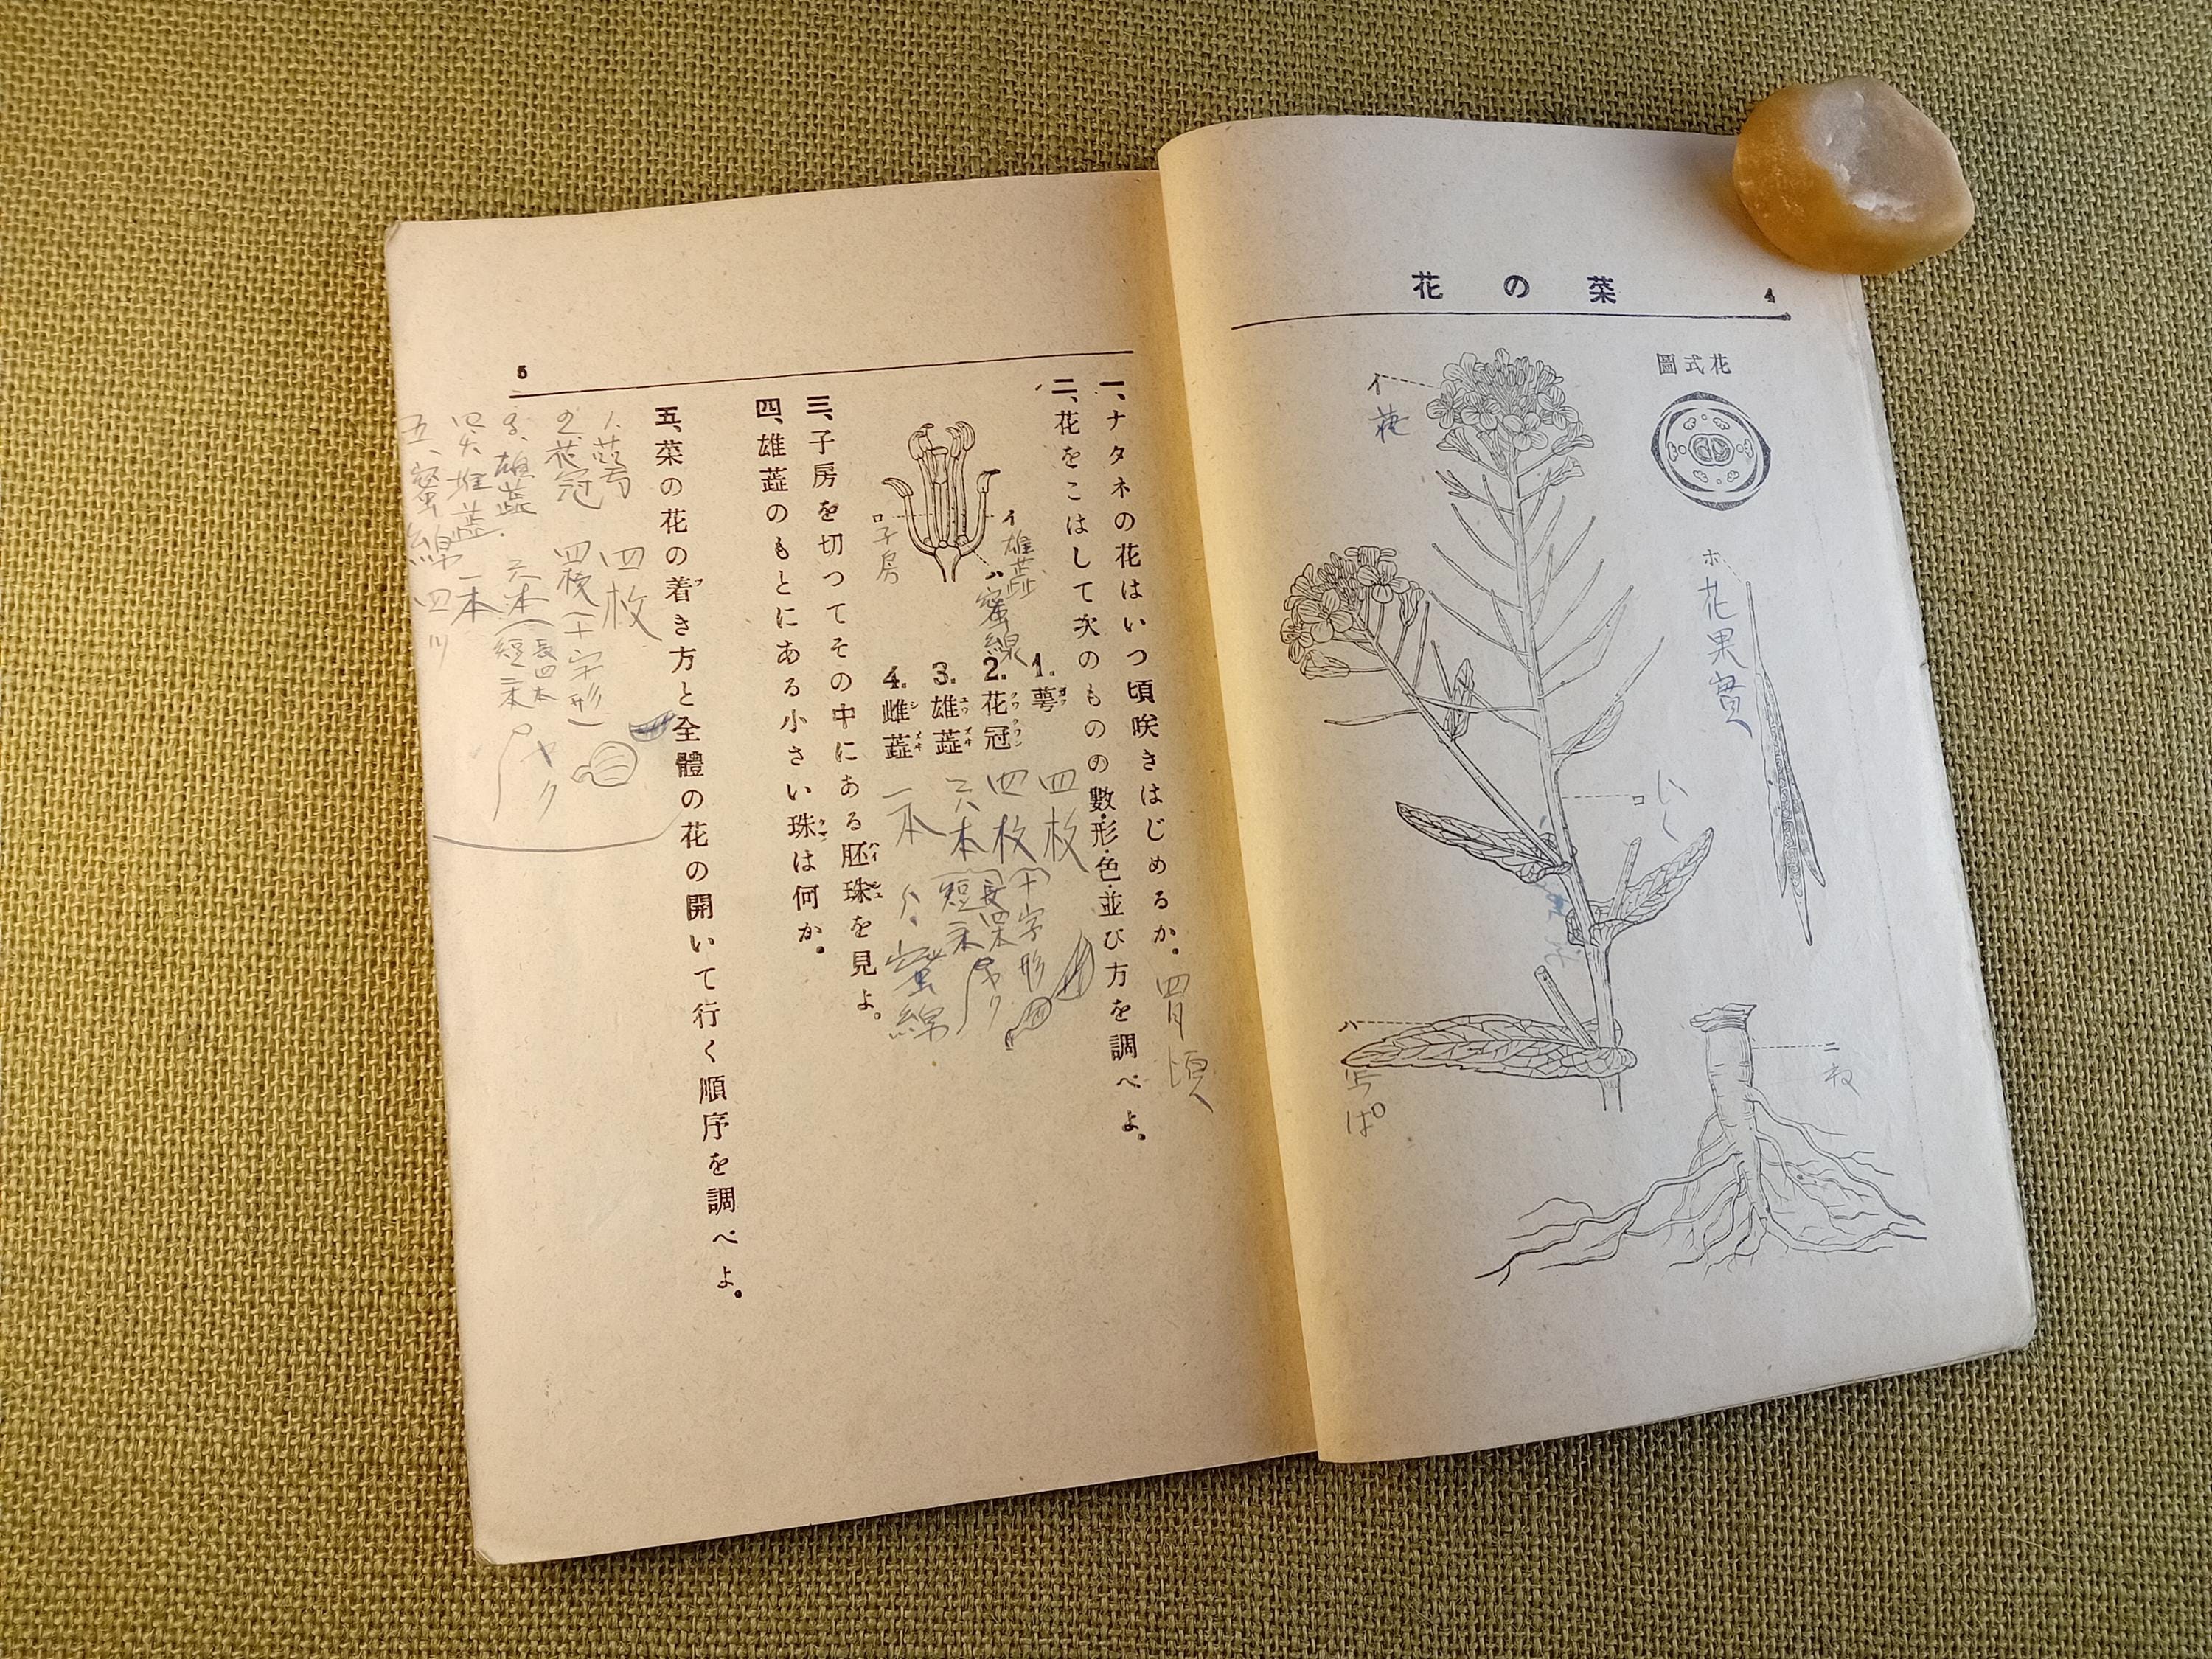 4
菜の花
花式圖
イ
花
ホ
花果實
ロ
ハ
っぱ
ニ
ね
5
一、ナタネの花はいつ頃咲きはじめるか。
四月頃
二、花をこはして次のものの數・形・色・並び方を調べよ。
イ
雄蕋
ロ
子房
ハ
蜜線
1. 萼 四枚
2. 花冠 四枚 (十字形)
3. 雄蕋 六本 (長四本 短二本)
ヤク
4. 雌蕋 一本
蜜綿
三、子房を切つてその中にある胚珠を見よ。
四、雄蕋のもとにある小さい珠は何か。
五、菜の花の着き方と全體の花の開いて行く順序を調べよ。
1、萼 四枚
2、花冠 四枚 (十字形)
3、雄蕋 六本 (長四本 短二本)
ヤク
四、雄蕋 一本
五、蜜綿 四